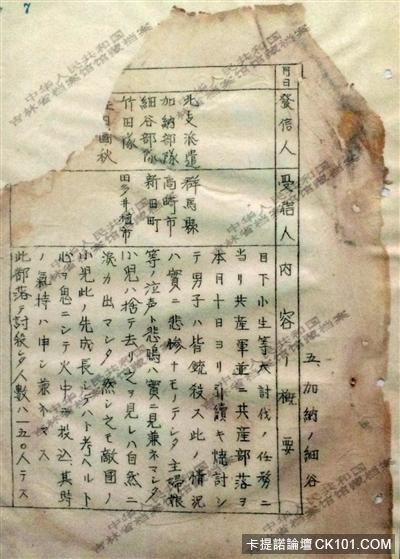 7
五、加納ノ細谷
月日
發信人
受信人
内容ノ概要
北支派遣
加納部隊
細谷部隊
竹田隊
群馬縣
高崎市
新田町
田多井植市
目下小生等大討伐ノ任務ニ
當リ共産軍並ニ共産部落ヲ
本月十日ヨリ引續キ焼討シ
テ男子ハ皆銃殺ス此ノ情況
ハ實ニ悲惨ナモノデシタ主婦娘
等ノ泣声ト悲鳴ハ實ニ見兼ネマシタ
小児ハ捨テ去リ之ヲ見レハ自然ニ
涙カ出マシタ然シ之モ敵國ノ
小児此ノ先成長シテハト考ヘルト
心ヲ鬼ニシテ火中ニ投込、其時
ノ氣持ハ申シ兼ネマス
此部落テ討殺シタ人数ハ一五〇人テス
中华人民共和国
吉林省档案馆馆藏档案
卡提諾論壇 CK101.COM